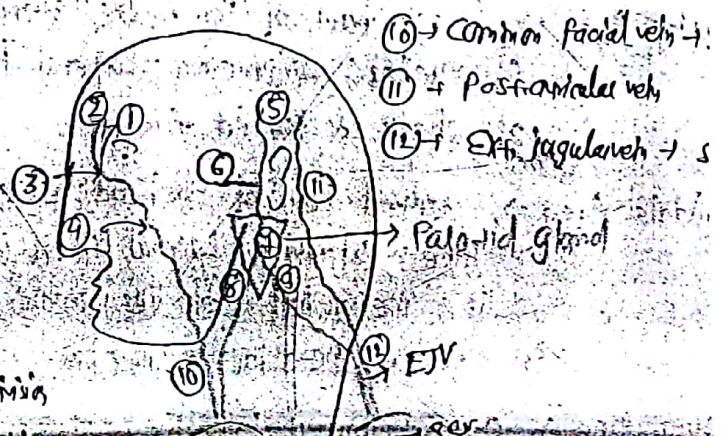 ⑩→ Common facial vein →
⑪→ Postauricular vein
⑫→ Ext. jugular vein → s
② ①
⑤
⑥
③
⑪
④
⑦
→ Parotid gland
⑧ ⑨
⑫
→ EJV
⑩